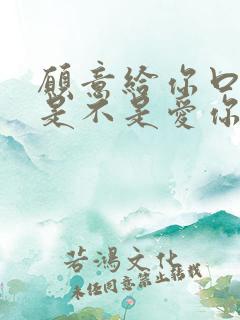 願意給你口
是不是愛你
若鴻文化
未經同意禁止轉載